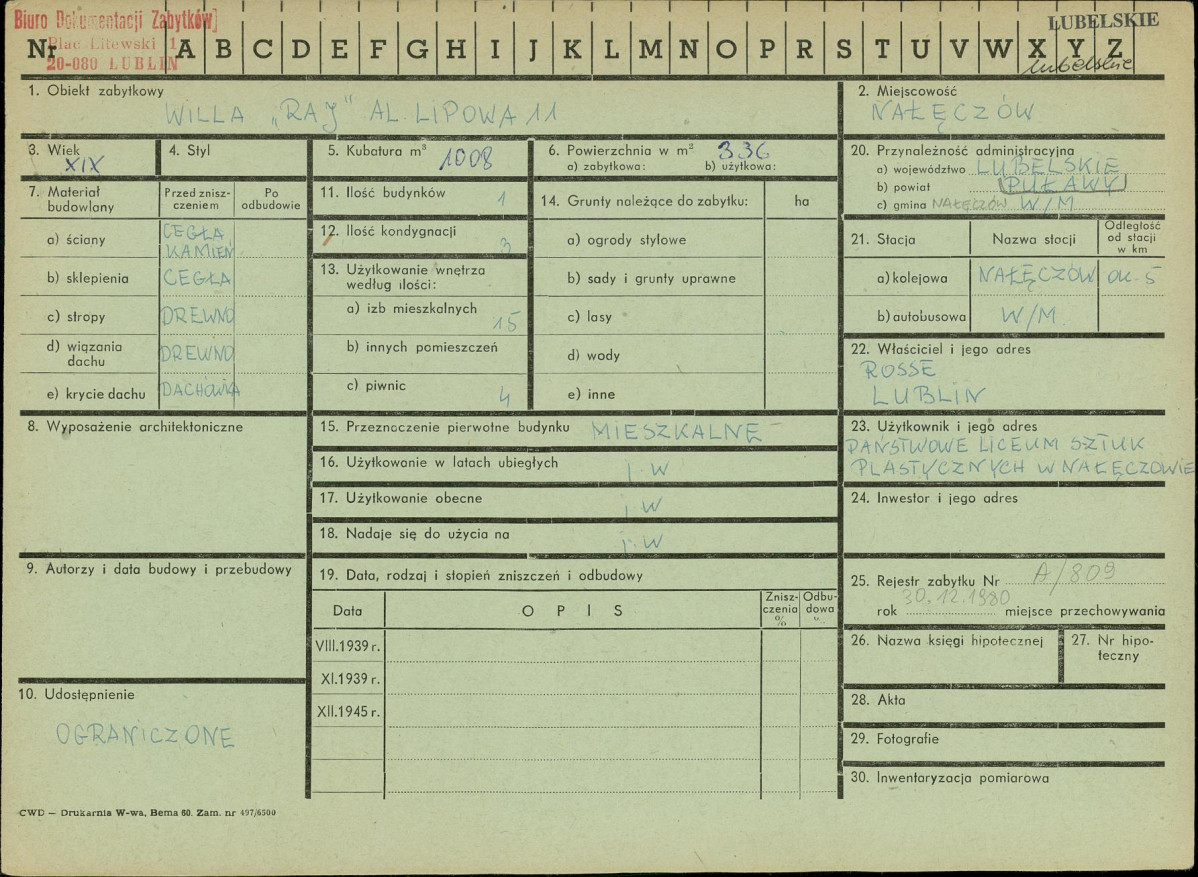 Biuro Dokumentacji Zabytków
Plac Litewski 1
20-080 LUBLIN
LUBELSKIE
Nr A B C D E F G H I J K L M N O P R S T U V W X Y Z
lubelskie
1. Obiekt zabytkowy
WILLA „RAJ” AL. LIPOWA 11
2. Miejscowość
NAŁĘCZÓW
3. Wiek
XIX
4. Styl
5. Kubatura m³ 1008
6. Powierzchnia w m² 336
a) zabytkowa: b) użytkowa:
7. Materiał budowlany
Przed zniszczeniem
Po odbudowie
a) ściany CEGŁA
KAMIEŃ
b) sklepienia CEGŁA
c) stropy DREWNO
d) wiązania dachu DREWNO
e) krycie dachu DACHÓWKA
8. Wyposażenie architektoniczne
9. Autorzy i data budowy i przebudowy
10. Udostępnienie
OGRANICZONE
11. Ilość budynków 1
12. Ilość kondygnacji 3
13. Użytkowanie wnętrza
według ilości:
a) izb mieszkalnych 15
b) innych pomieszczeń
c) piwnic 4
14. Grunty należące do zabytku: ha
a) ogrody stylowe
b) sady i grunty uprawne
c) lasy
d) wody
e) inne
15. Przeznaczenie pierwotne budynku MIESZKALNE
16. Użytkowanie w latach ubiegłych j.w
17. Użytkowanie obecne j.w
18. Nadaje się do użycia na j.w
19. Data, rodzaj i stopień zniszczeń i odbudowy
Data OPIS Zniszczenia % Odbudowa
VIII.1939 r.
XI.1939 r.
XII.1945 r.
20. Przynależność administracyjna
a) województwo LUBELSKIE
b) powiat PUŁAWY
c) gmina NAŁĘCZÓW W/M
21. Stacja Nazwa stacji Odległość od stacji w km
a) kolejowa NAŁĘCZÓW ok. 5
b) autobusowa W/M.
22. Właściciel i jego adres
ROSSE
LUBLIN
23. Użytkownik i jego adres
PAŃSTWOWE LICEUM SZTUK
PLASTYCZNYCH W NAŁĘCZOWIE
24. Inwestor i jego adres
25. Rejestr zabytku Nr A/809
rok 30.12.1980 miejsce przechowywania
26. Nazwa księgi hipotecznej
27. Nr hipoteczny
28. Akta
29. Fotografie
30. Inwentaryzacja pomiarowa
CWD — Drukarnia W-wa, Bema 60. Zam. nr 497/6500